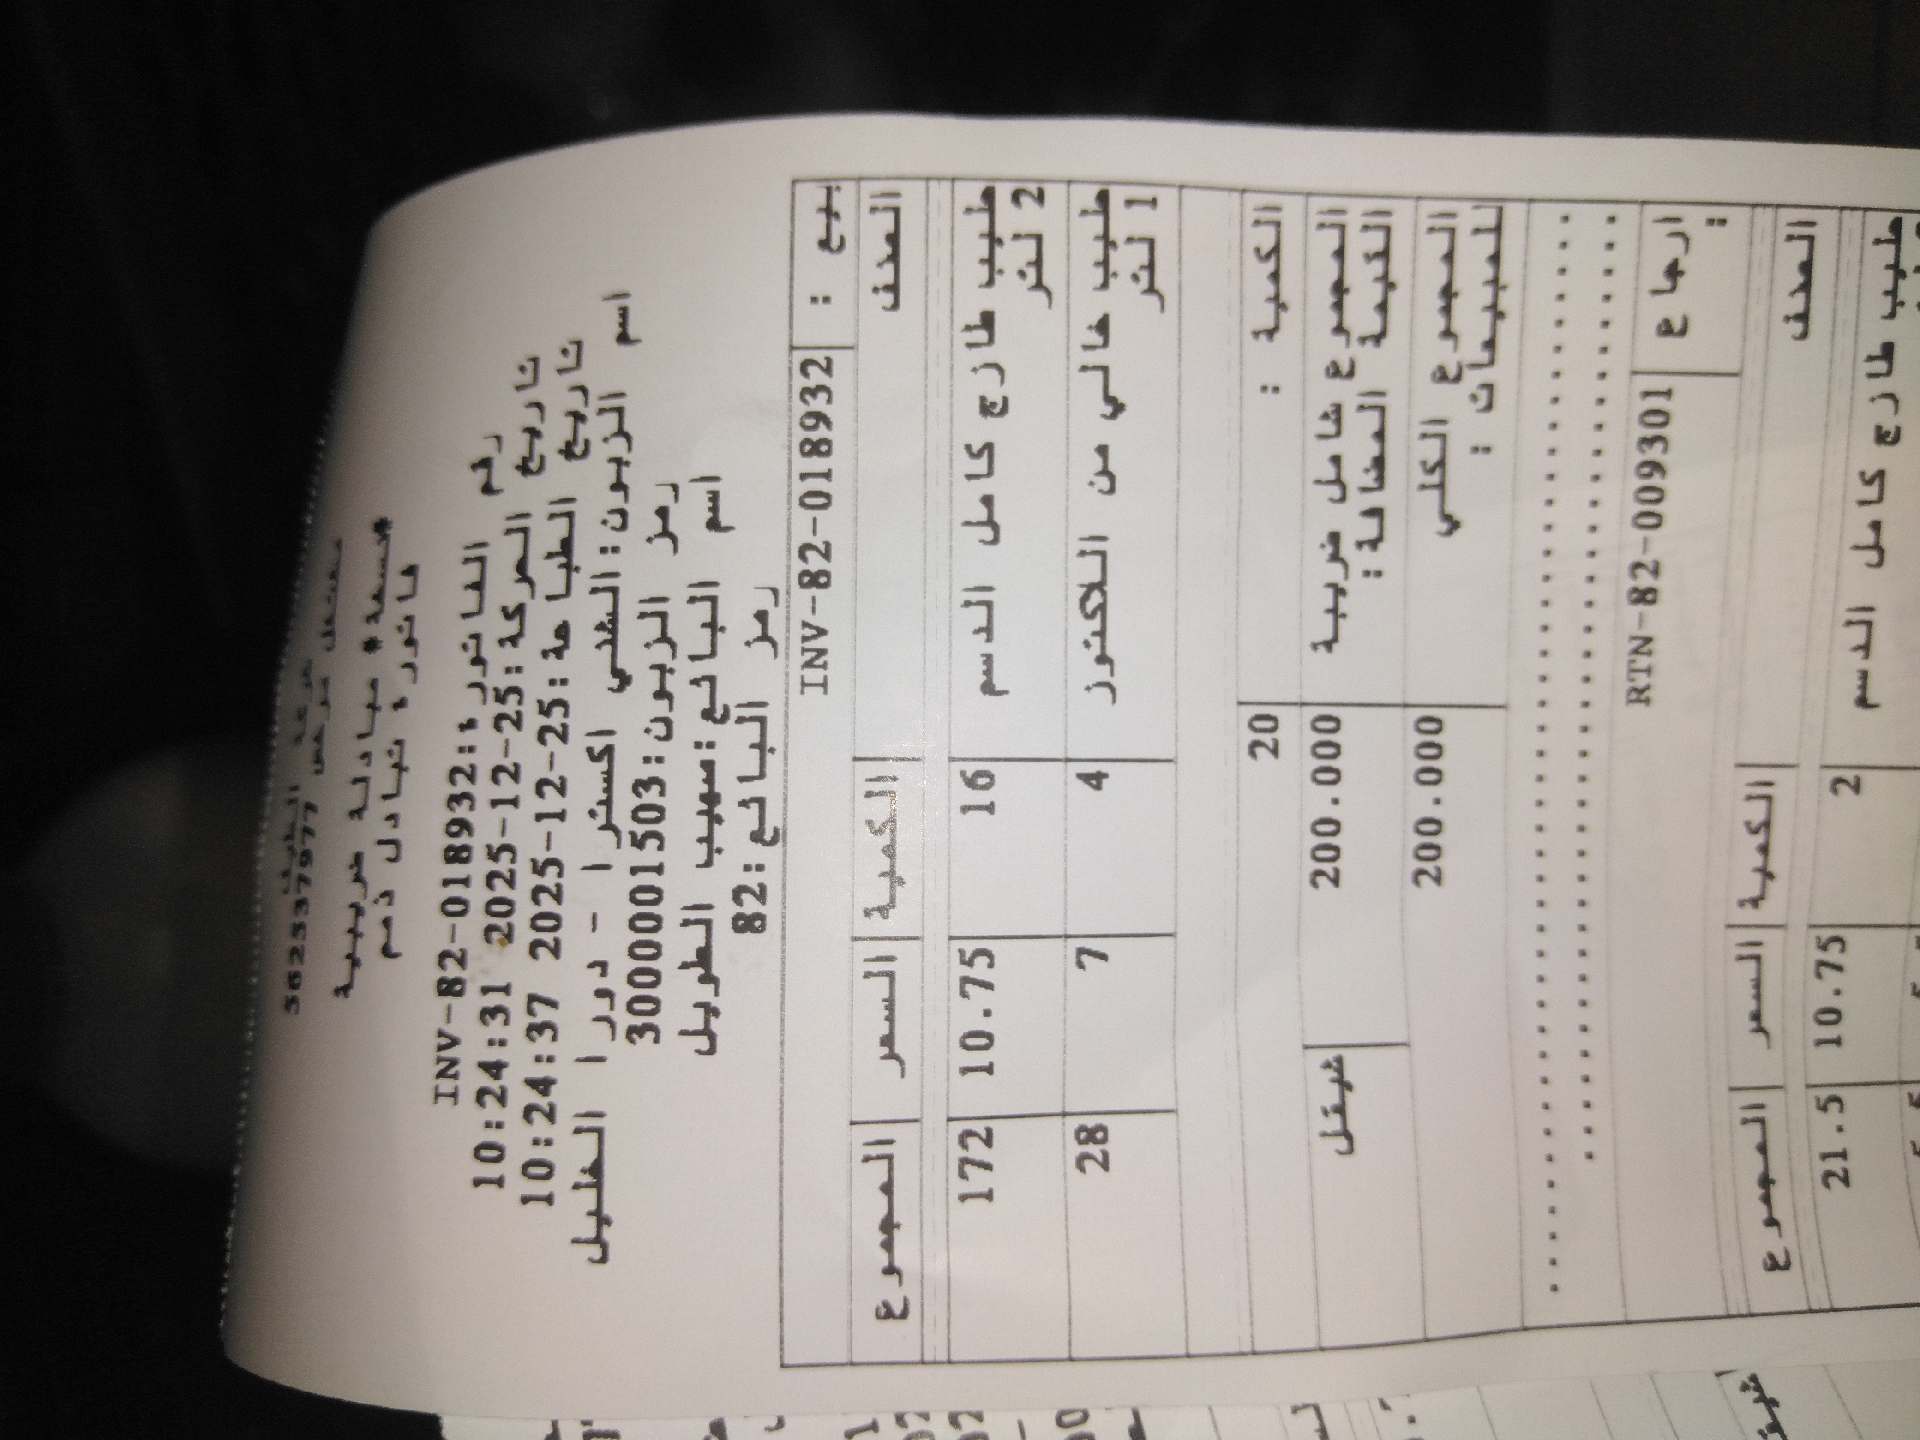 مشتغل مرخص
562537977
*نسخة* مبادلة ضريبية
فاتورة تبادل ذمم
رقم الفاتورة:INV-82-018932
تاريخ الحركة:2025-12-25 10:24:31
تاريخ الطباعة:2025-12-25 10:24:37
اسم الزبون:الشني اكسترا - دورا الخليل
رمز الزبون:3000001503
اسم البائع:مهيب الطويل
رمز البائع:82
بيع : INV-82-018932
الصنف الكمية السعر المجموع
حليب طازج كامل الدسم 16 10.75 172
2 لتر
حليب خالي من اللاكتوز 4 7 28
1 لتر
الكمية : 20
المجموع شامل ضريبة 200.000 شيقل
القيمة المضافة:
المجموع الكلي 200.000
للمبيعات :
ارجاع RTN-82-009301
:
الصنف الكمية السعر المجموع
حليب طازج كامل الدسم 2 10.75 21.5